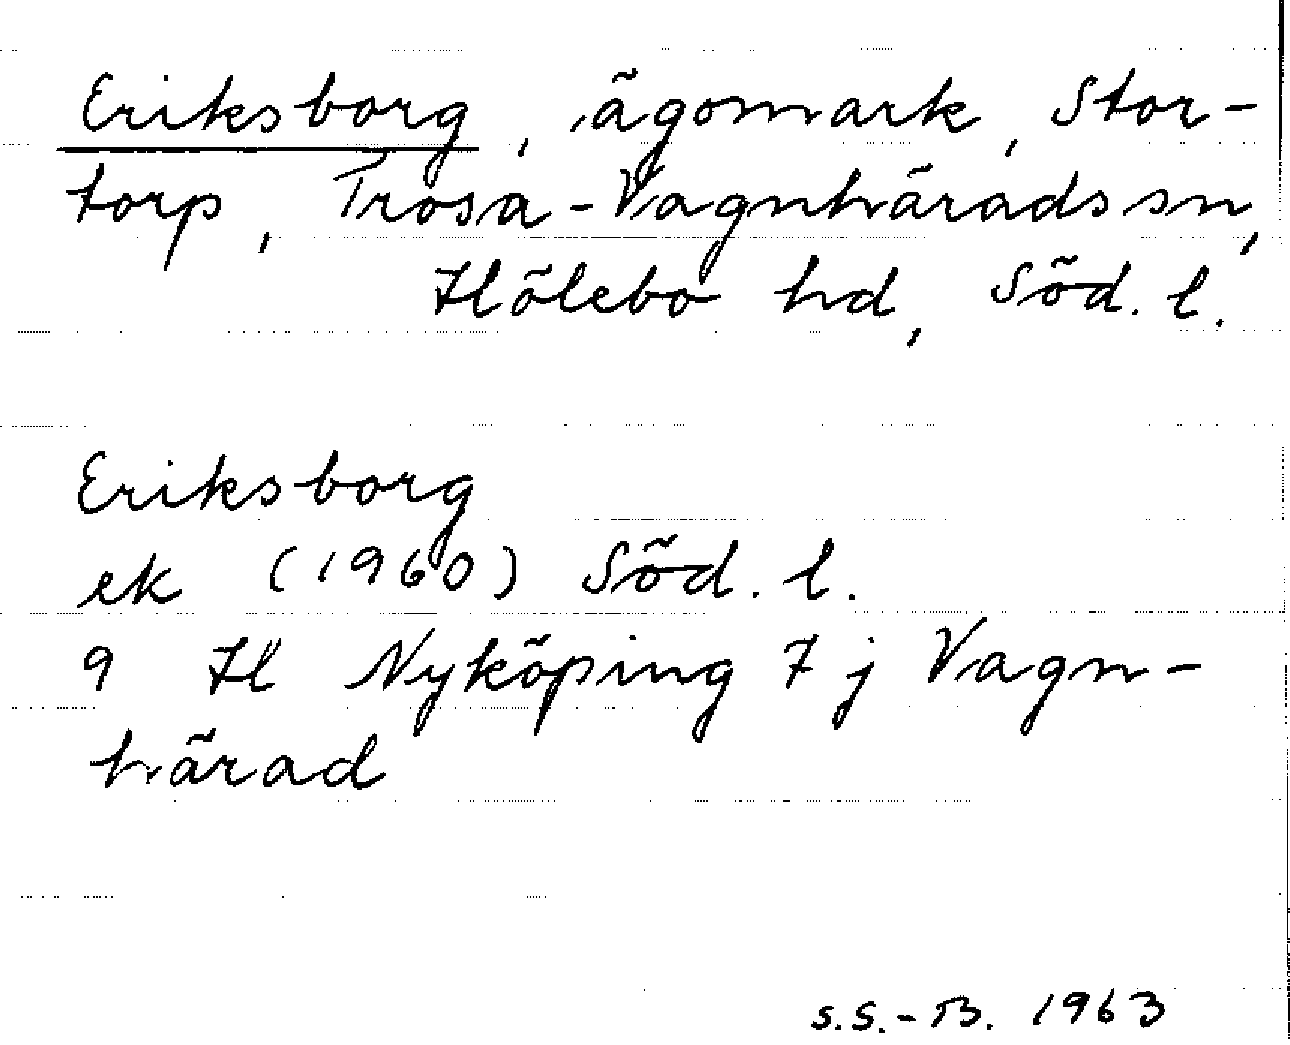 Eriksborg, ägomark, Stor-
torp, Trosa-Vagnhärads sn,
Hölebo hd, Söd. l.
Eriksborg
ek (1960) Söd. l.
9 H Nyköping 7 j Vagn-
härad
S.S.-B. 1963